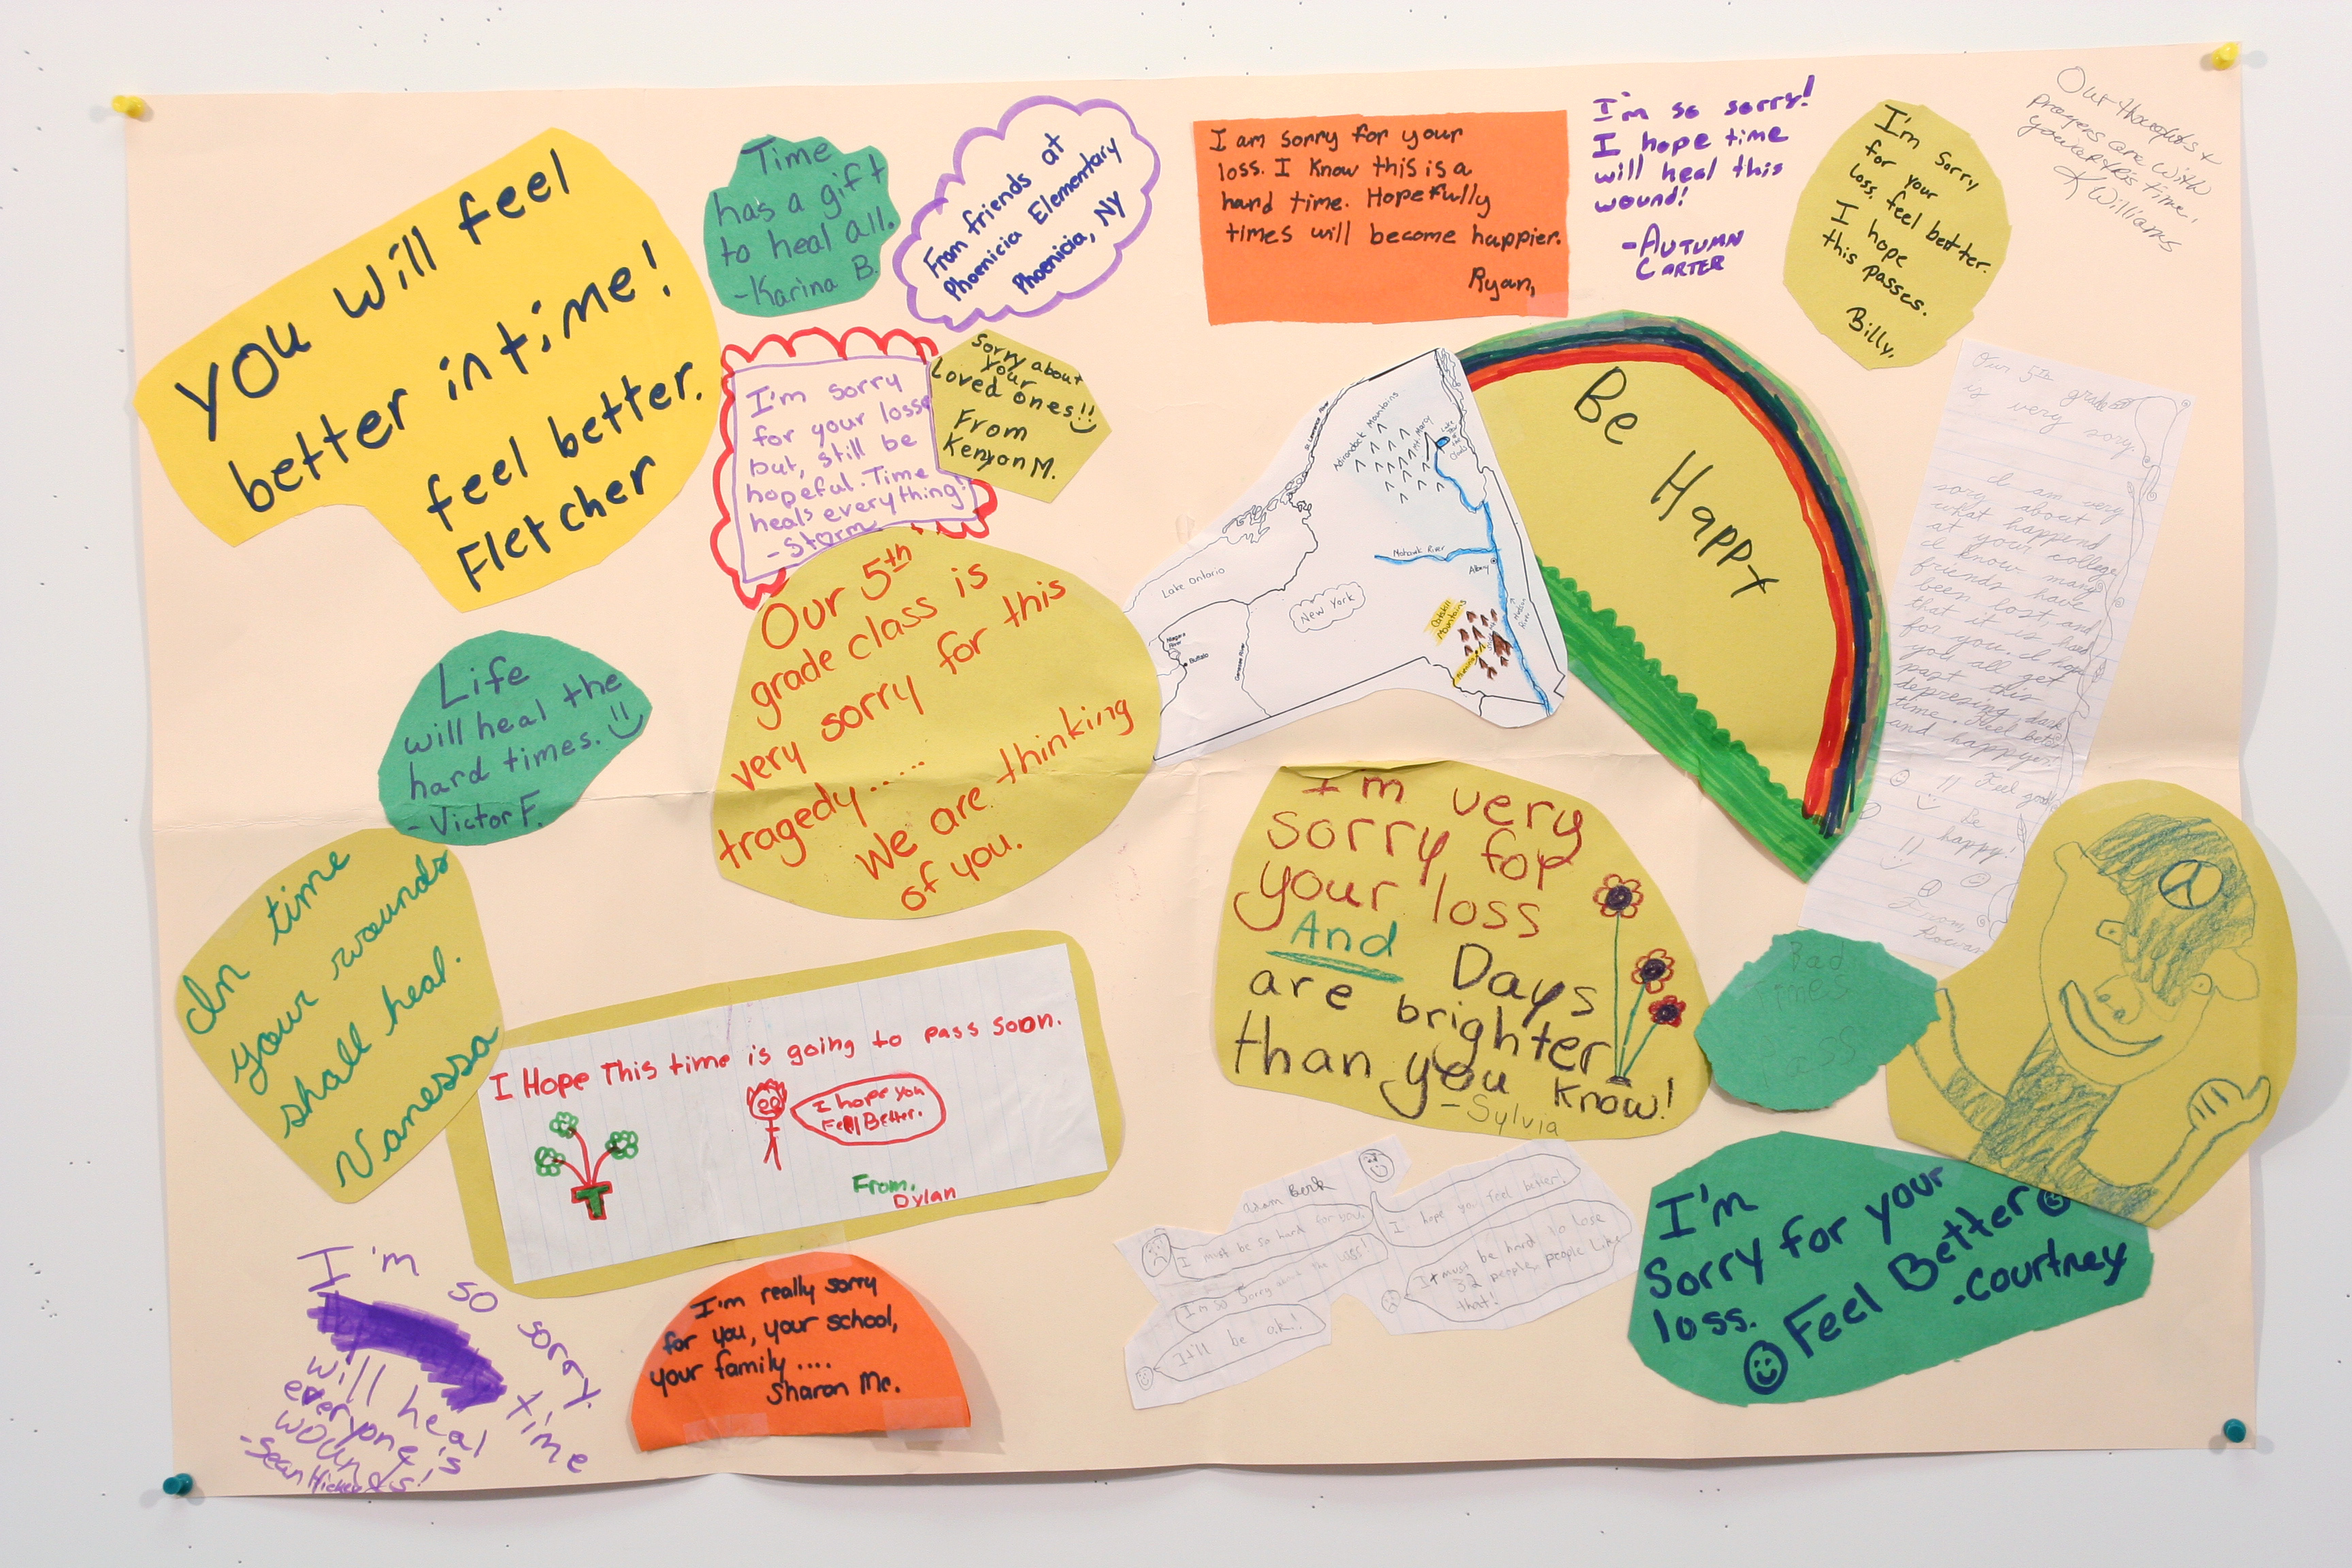 You will feel
better in time!
feel better.
Fletcher
Time
has a gift
to heal all.
-Karina B.
From friends at
Phoenicia Elementary
Phoenicia, NY
I am sorry for your
loss. I know this is a
hard time. Hopefully
times will become happier.
Ryan,
I'm so sorry!
I hope time
will heal this
wound!
-AUTUMN
CARTER
I'm sorry
for your
loss. feel better.
I hope
this passes.
Billy.
Our thoughts +
prayers are with
you this time.
K Williams
I'm sorry
for your losse
but, still be
hopeful. Time
heals everything!
-Storm
Sorry about
your
Loved ones!!
From
Kenyon M.
Adirondack Mountains
Mt. Marcy
Lake Ontario
Mohawk River
Albany
New York
Catskill
Mountains
Hudson
River
Niagara
River
Buffalo
Genesee River
Be
Happy
Our 5th grade
is very sorry.
I am very
sory about
what happend
at your college
I know many
friends have
been lost, and
that it is hard
for you. I hope
you all get
past this
depressing, dark
time. Feel better
and happyer!
Feel good
Be
happy!
From,
Rowan
Our 5th
grade class is
very sorry for this
tragedy......
We are thinking
of you.
Life
will heal the
hard times.
-Victor F.
In time
your wounds
shall heal.
Vanessa
I'm very
sorry for
your loss
And Days
are brighter
than you know!
-Sylvia
Bad
Times
Pass
I Hope This time is going to pass soon.
I hope you
Feel Better.
From,
Dylan
Adam Berk
I must be so hard for you.
I'm so sorry about the loss!
It'll be o.k.!
I hope you feel better!
It must be hard to lose
32 people, people like
that!
I'm
Sorry for your
loss.
Feel Better
-Courtney
I'm so sorry.
time
will heal
everyone's
wounds!
-Sean
I'm really sorry
for you, your school,
your family ....
Sharon Mc.